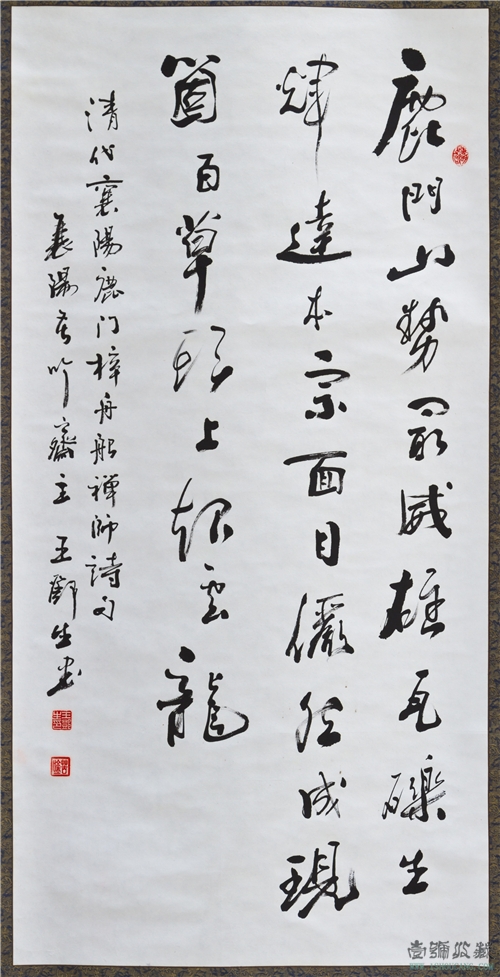 鹿門山勢最威雄瓦礫生
輝達本宗面目儼然成現
箇百草頭上起云龍
清代襄陽鹿门梓舟船禪师詩句
襄陽吟齋主王生书